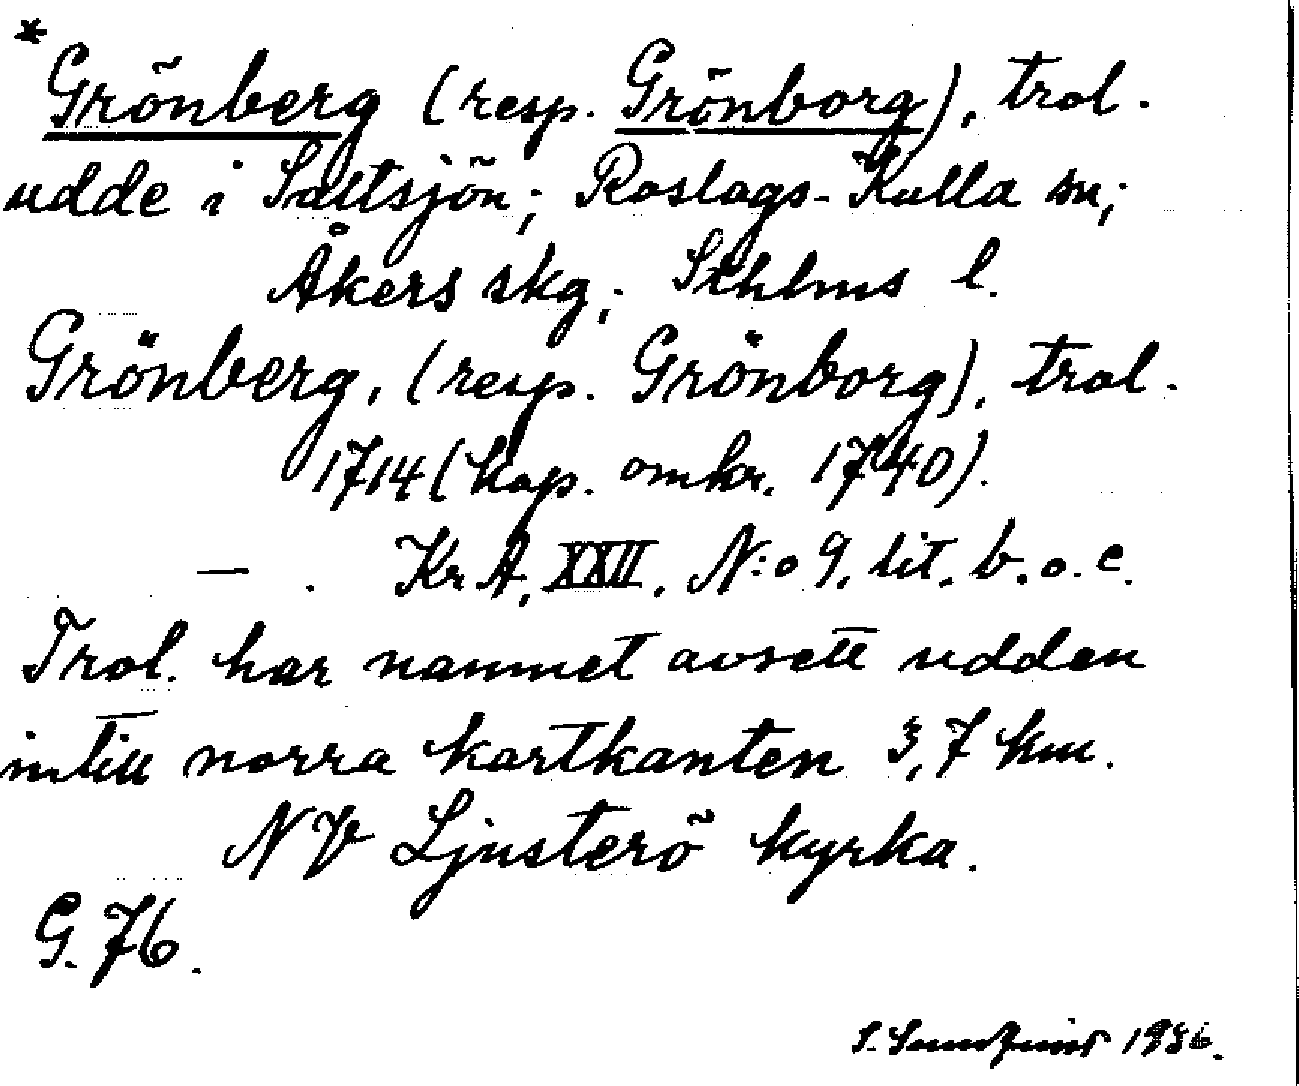 * Grönberg (resp. Grönborg), trol.
udde i Saltsjön; Roslags-Kulla sn;
Åkers skg; Sthlms l.
Grönberg, (resp. Grönborg), trol.
1714 (kop. omkr. 1740).
— . KrA, XXII, N:o 9, lit. b. o. c.
Trol. har namnet avsett udden
intill norra kartkanten 3,7 km.
NV Ljusterö kyrka.
G. 76.
S. 1936.